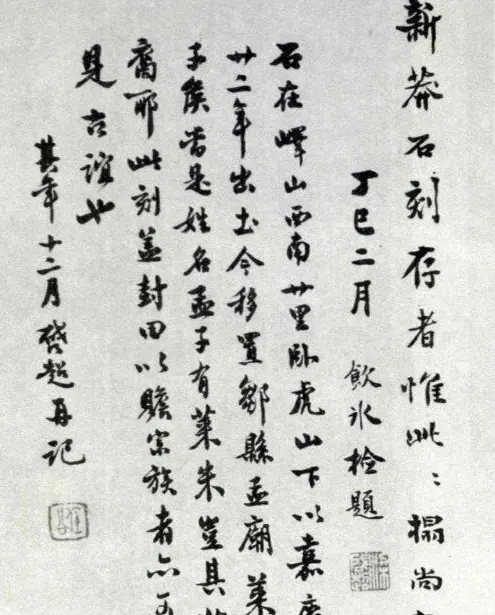 新莽石刻存者惟此此榻尚
丁巳二月 飲冰檢題
石在嶧山西南廿里卧虎山下以嘉慶
廿二年出土今移置鄒縣孟廟萊
子矦當是姓名孟子有萊朱豈其
裔耶此刻蓋封田以贍宗族者亦可
見古誼也
其年十二月啓超再記